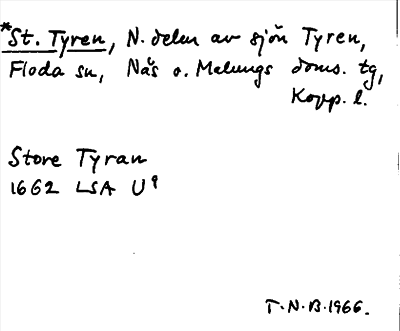 *St. Tyren, N. delen av sjön Tyren,
Floda sn, Näs o. Malungs doms. tg,
Kopp. l.
Store Tyran
1662 LSA U9
T.N.B. 1966.